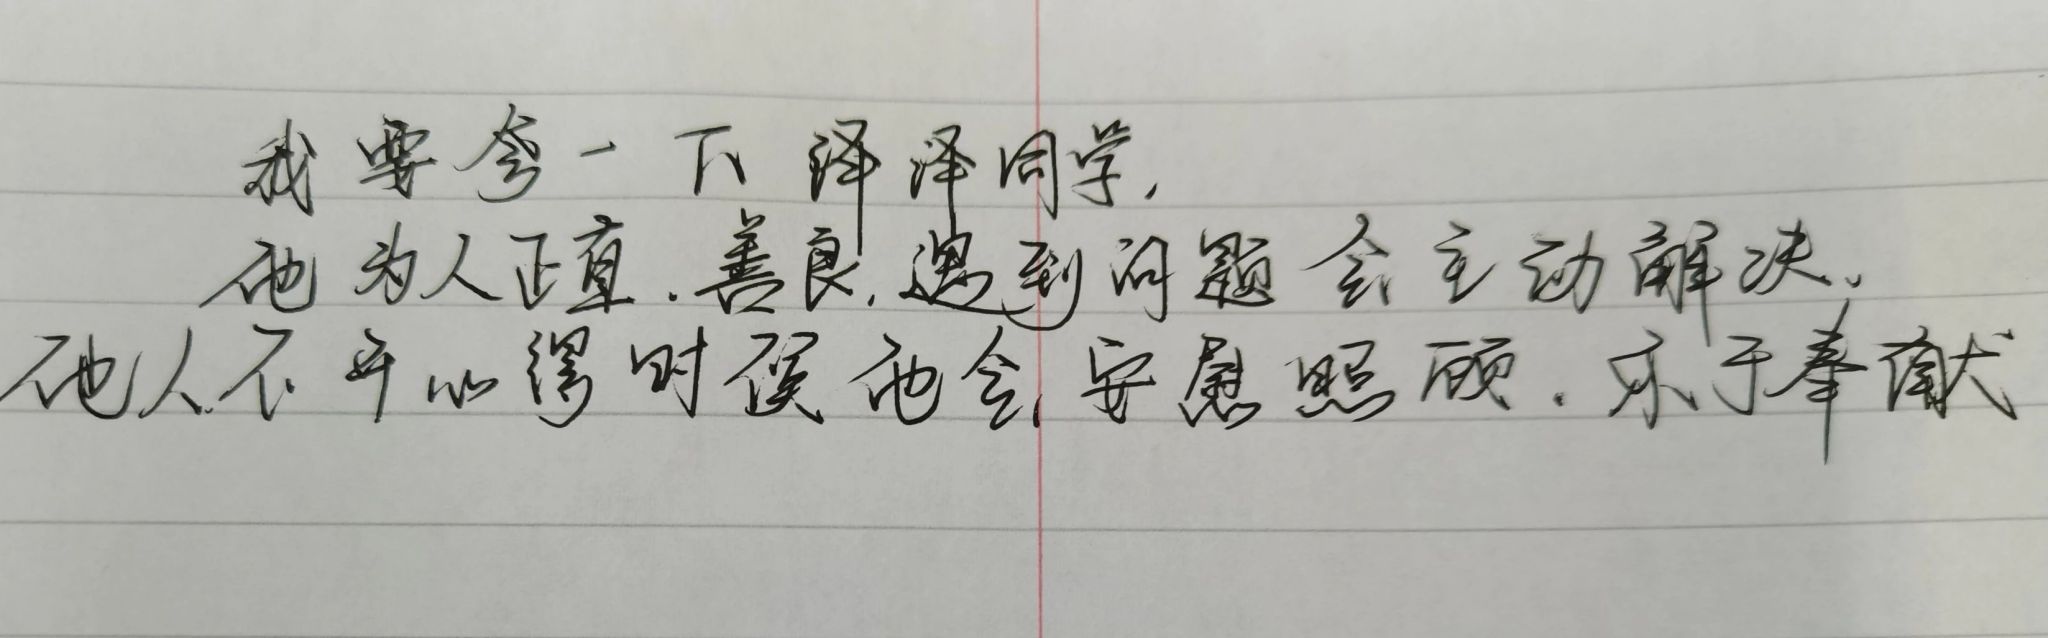 我要夸一下泽泽同学，
他为人正直．善良，遇到问题会主动解决、
他人不开心得时候他会安慰照顾．乐于奉献